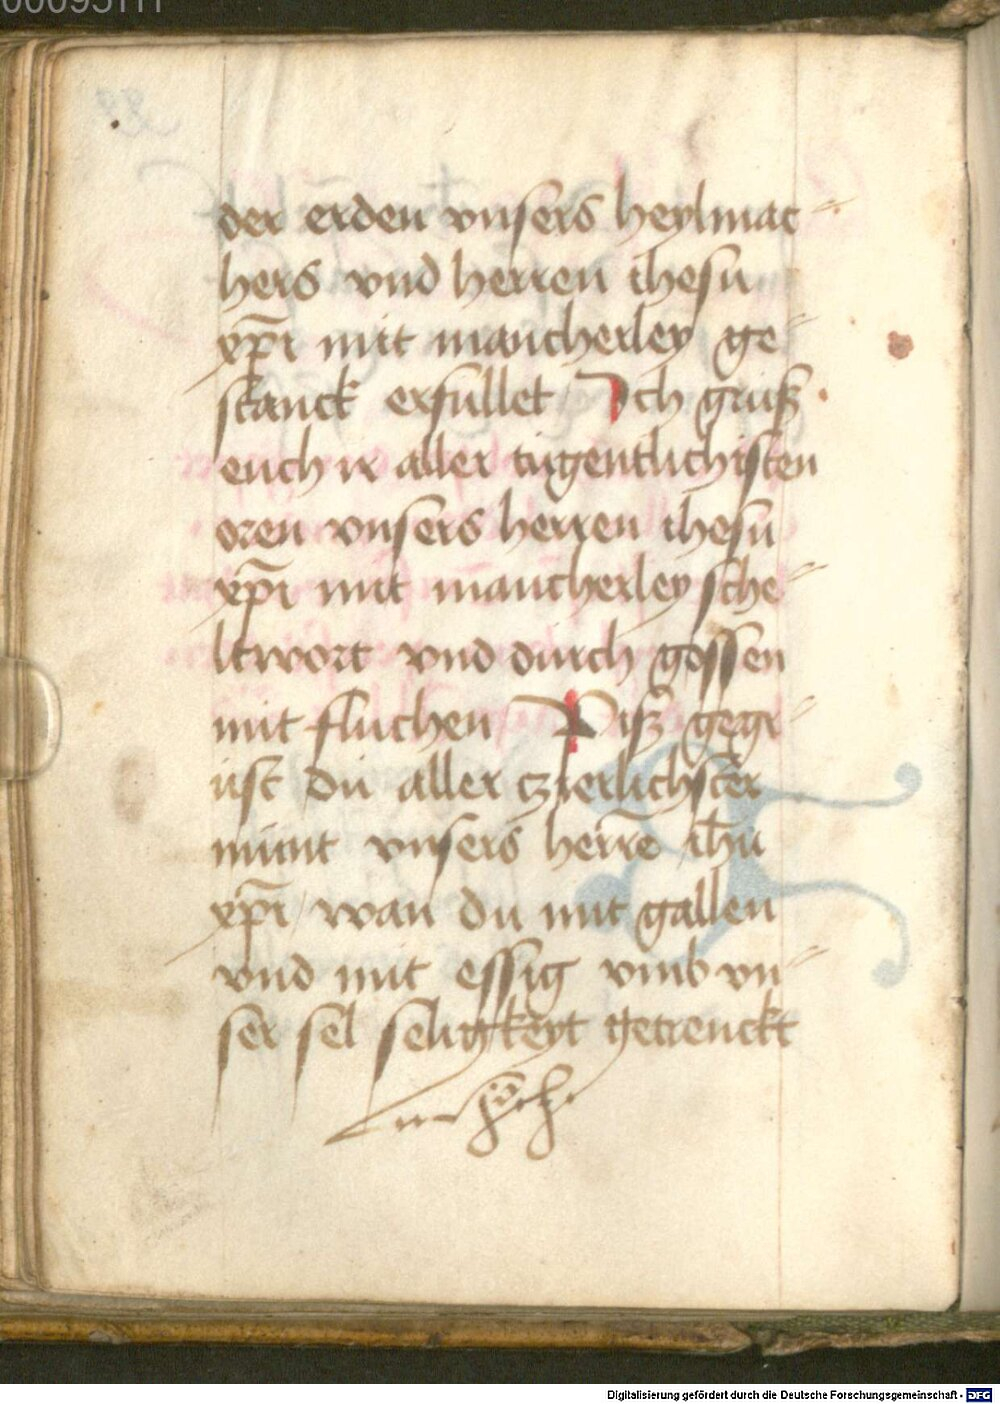 der erden vnsers heylmac
hers vnd herren ihesu
xp̄i mit mancherley ge
stanck erfullet Ich gruß
euch ir aller tugentlichisten
oren vnsers herren ihesu
xp̄i mit mancherley sche
ltwort vnd durch gossen
mit fluchen Piß gegr
üst du aller czierlichster
munt vnsers herrē ih̄u
xp̄i wan du mit gallen
vnd mit essig vmb vn
ser sel seligkeyt getrenckt
Digitalisierung gefördert durch die Deutsche Forschungsgemeinschaft - DFG